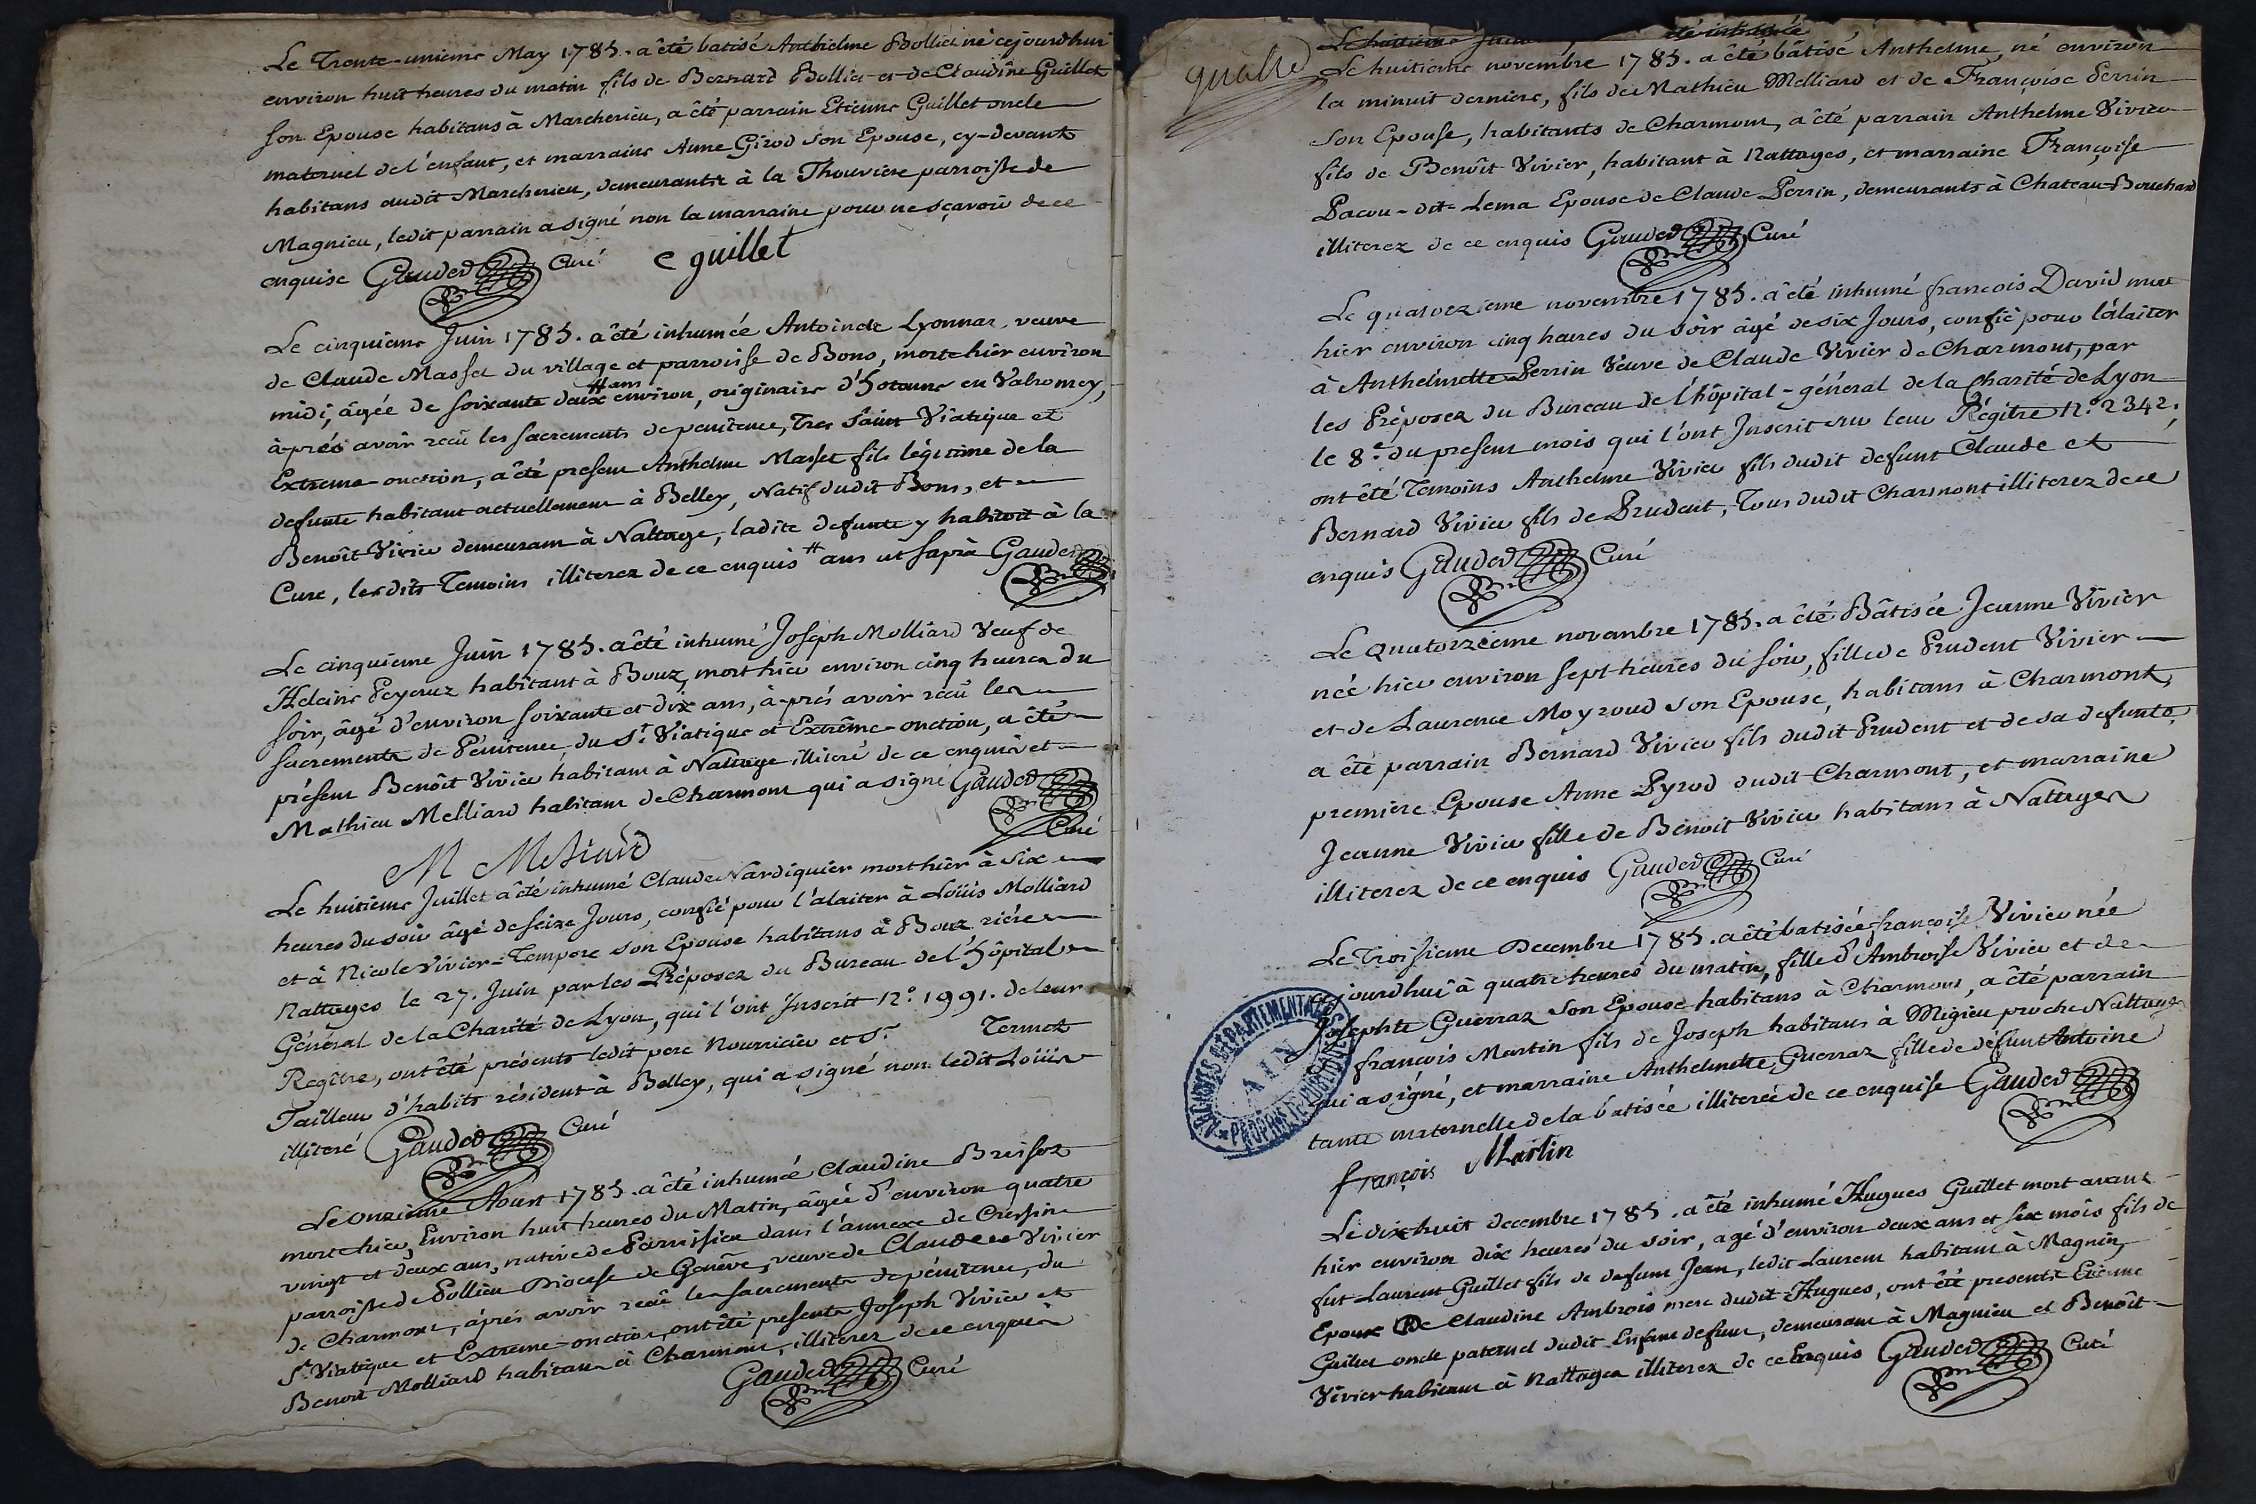 Le Trente-unieme May 1785. a été batisé Anthelme Bollict né cejourdhui
environ huit heures du matin fils de Bernard Bollict et de Claudine Guillet
son Epouse habitans à Marcherieu, a été parrain Etienne Guillet oncle
maternel de l'enfant, et marraine Anne Girod son Epouse, cy-devant
habitans audit Marcherieu, demeurants à la Thouviere parroisse de
Magnieu, ledit parrain a signé non la marraine pour ne sçavoir de ce
enquise Gauded Curé e guillet
Le cinquieme Juin 1785. a été inhumée Antoinete Lyonnar, veuve
de Claude Masset du village et parroisse de Bons, morte hier environ
midi, âgée de soixante deux environ, originaire d'hotonne en Valromey,
après avoir reçû les sacrements de penitence, Tres saint Viatique et
Extreme-onction, a été present Anthelme Masset fils légitime de la
defunte habitant actuellement à Belley, Natif dudit Bons, et
Benoît Vivier demeurant à Nattage, ladite defunte y habitoit à la
Cure, lesdits Temoins illiterez de ce enquis # ans ut suprà Gauded
Le cinquieme Juin 1785. a été inhumé Joseph Molliard Veuf de
Helaine Peyeruz habitant à Bouz, mort hier environ cinq heures du
soir, âgé d'environ soixante et dix ans, après avoir reçû les
sacrements de Pénitence, du St. Viatique et Extrême-onction, a été
présent Benoît Vivier habitant à Nattage illiteré de ce enquis et
Mathieu Melliard habitant de Charmont qui a signé Gauded
Curé
M Meliard
Le huitieme Juillet a été inhumé Claude Nardiquier mort hier à six
heures du soir âgé de seize Jours, confié pour l'alaiter à Loüis Molliard
et à Nicole Vivier-Tempore son Epouse habitans à Bouz riére
Nattages le 27. Juin par les Préposez du Bureau de l'hôpital
Général de la Charité de Lyon, qui l'ont Inscrit N°. 1991. de leur
Regître, ont été présents ledit pere Nourricier et Sr. Termet
Tailleur d'habits résident à Belley, qui a signé non ledit Loüis
illiteré Gauded Curé
Le onzieme Aoust 1785. a été inhumée Claudine Bressoz
morte hier, Environ huit heures du Matin, âgée d'environ quatre
vingt et deux ans, native de Parrissieu dans l'annexe de Cressin
parroisse de Pollieu Diocese de Genêve, veuve de Claude Vivier
de Charmont, après avoir reçû les sacrements de pénitence, du
St. Viatique et Extreme-onction, ont été presents Joseph Vivier et
Benoit Molliard habitans à Charmont, illiterez de ce enquis
Gauded Curé
quatre
Le huitieme été inhumée
Le huitieme novembre 1785. a été bâtisé Anthelme, né environ
la minuit derniere, fils de Mathieu Melliard et de Françoise Perrin
son Epouse, habitants de Charmont, a été parrain Anthelme Vivier
fils de Benoît Vivier, habitant à Nattages, et marraine Françoise
Pacou-dit-Lema Epouse de Claude Perrin, demeurants à Chateau-Bouchard
illiterez de ce enquis Gauded Curé
Le quatorzieme novembre 1785. a été inhumé françois David mort
hier environ cinq heures du soir âgé de six Jours, confié pour l'alaiter
à Anthelmette Perrin Veuve de Claude Vivier de Charmont, par
les Préposez du Bureau de l'hôpital-général de la Charité de Lyon
le 8e. du present mois qui l'ont Inscrit sur leur Régître N°. 2342,
ont été Temoins Anthelme Vivier fils dudit defunt Claude et
Bernard Vivier fils de Prudent, Tous dudit Charmont illiterez de ce
enquis Gauded Curé
Le Quatorzieme novembre 1785. a été Bâtisée Jeanne Vivier
née hier environ sept heures du soir, fille de Prudent Vivier
et de Laurence Moyroud son Epouse, habitans à Charmont,
a été parrain Bernard Vivier fils dudit Prudent et de sa defunte
premiere Epouse Anne Pyrod dudit Charmont, et marraine
Jeanne Vivier fille de Benoit Vivier habitans à Nattages
illiterez de ce enquis Gauded Curé
Le Troisieme Decembre 1785. a été batisée françoise Vivier née
cejourdhui à quatre heures du matin, fille d'Ambroise Vivier et de
Josephte Guerraz son Epouse habitans à Charmont, a été parrain
françois Martin fils de Joseph habitans à Migieu proche Nattages
qui a signé, et marraine Anthelmette Guerraz fille de défunt Antoine
tante maternelle de la batisée illiterée de ce enquise Gauded
françois Martin
Le dix huit decembre 1785. a été inhumé Hugues Guillet mort avant
hier environ dix heures du soir, agé d'environ deux ans et six mois fils de
fut Laurent Guillet fils de defunt Jean, ledit Laurent habitant à Magnin,
Epoux De Claudine Ambrois mere dudit Hugues, ont été presents Etienne
Guillet oncle paternel dudit Enfant defunt, demeurant à Magnieu et Benoît
Vivier habitant à Nattages illiterez de ce Enquis Gauded Curé
ARCHIVES DÉPARTEMENTALES
AIN